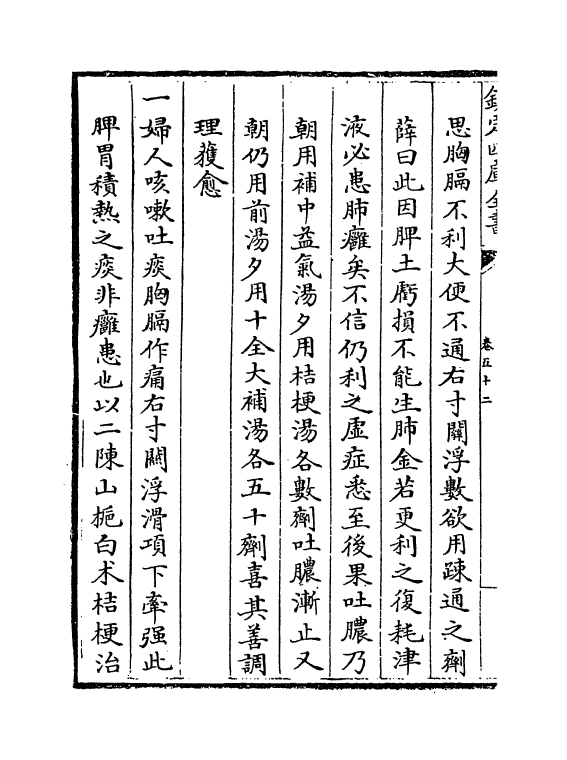 欽定四庫全書
卷五十二
思胸膈不利大便不通右寸關浮數欲用疎通之劑
薛曰此因脾土虧損不能生肺金若更利之復耗津
液必患肺癰矣不信仍利之虛症悉至後果吐膿乃
朝用補中益氣湯夕用桔梗湯各數劑吐膿漸止又
朝仍用前湯夕用十全大補湯各五十劑喜其善調
理獲愈
一婦人咳嗽吐痰胸膈作痛右寸關浮滑項下牽强此
脾胃積熱之痰非癰患也以二陳山梔白术桔梗治